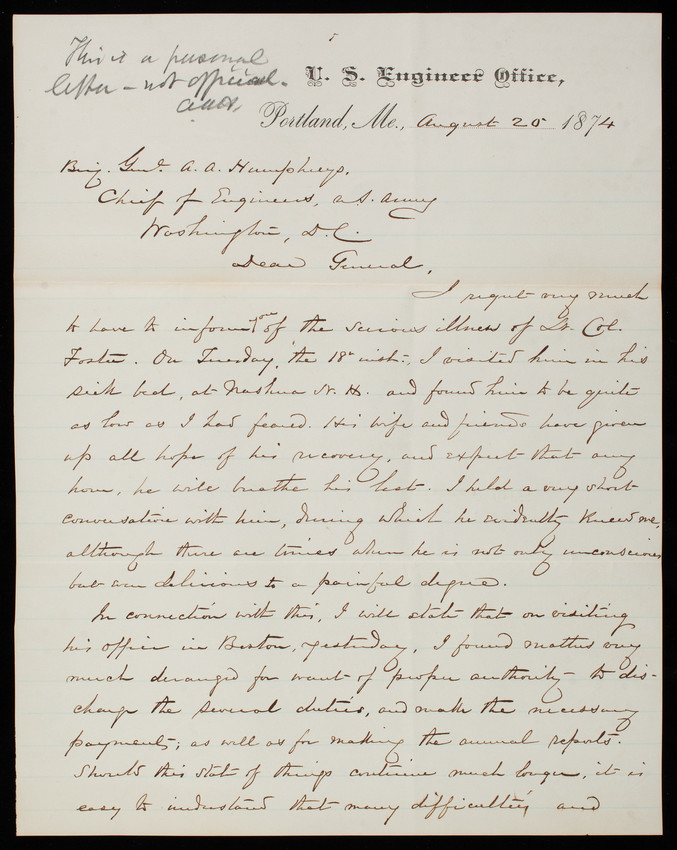 This is a personal
letter - not official.
U. S. Engineer Office,
Portland, Me., August 20 1874
Brig. Genl. A. A. Humphreys,
Chief of Engineers, U.S. Army
Washington, D.C.
Dear General,
I regret very much
to have to inform you of the serious illness of Lt. Col.
Foster. On Tuesday, the 18th inst., I visited him in his
sick bed, at Nashua N.H. and found him to be quite
as low as I had feared. His wife and friends have given
up all hope of his recovery, and expect that any
hour, he will breathe his last. I held a very short
conversation with him, during which he evidently knew me,
although there are times when he is not only unconscious
but even delirious to a painful degree.
In connection with this, I will state that on visiting
his office in Boston, yesterday, I found matters very
much deranged for want of proper authority to dis-
charge the several duties, and make the necessary
payments; as well as for making the annual reports.
Should this state of things continue much longer, it is
easy to understand that many difficulties, and